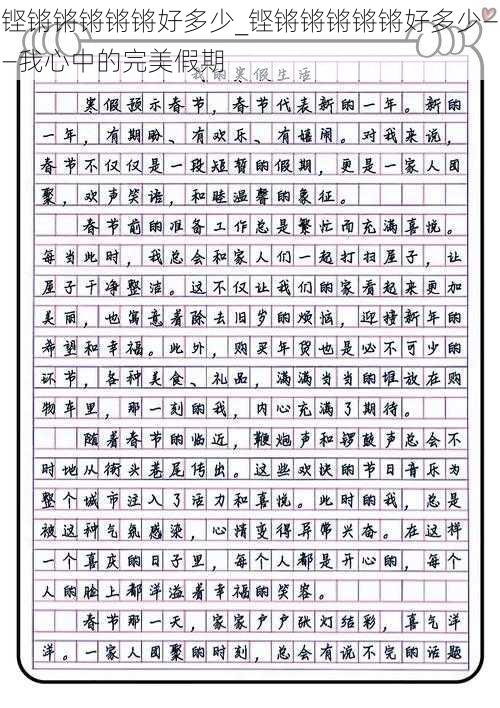 铿锵锵锵锵锵好多少_铿锵锵锵锵锵好多少—
—我心中的完美假期
我的寒假生活
寒假预示春节，春节代表新的一年。新的
一年，有期盼、有欢乐、有嬉闹。对我来说，
春节不仅仅是一段短暂的假期，更是一家人团
聚，欢声笑语，和睦温馨的象征。
春节前的准备工作总是繁忙而充满喜悦。
每当此时，我总会和家人们一起打扫屋子，让
屋子干净整洁。这不仅让我们的家看起来更加
美丽，也寓意着除去旧岁的烦恼，迎接新年的
希望和幸福。此外，购买年货也是必不可少的
环节，各种美食、礼品，满满当当的堆放在购
物车里，那一刻的我，内心充满了期待。
随着春节的临近，鞭炮声和锣鼓声总会不
时地从街头巷尾传出。这些欢快的节日音乐为
整个城市注入了活力和喜悦。此时的我，总是
被这种气氛感染，心情变得异常兴奋。在这样
一个喜庆的日子里，每个人都是开心的，每个
人的脸上都洋溢着幸福的笑容。
春节那一天，家家户户张灯结彩，喜气洋
洋。一家人团聚的时刻，总会有说不完的话题